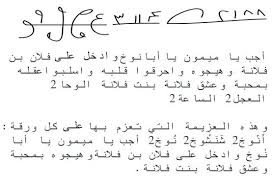 أجب يا ميمون يا أبانوخ وادخل على فلان بن
فلانة وهيجوه واحرقوا قلبه واسلبوا عقله
بمحبة وعشق فلانة بنت فلانة الوحا 2
العجل 2 الساعة 2
وهذه العزيمة التي تعزم بها على كل ورقة :
أنُوخ 2 نُوخ 2 أجب يا ميمون يا أبا
نُوخ وادخل على فلان بن فلانة وهيجوه بمحبة
وعشق فلانة بنت فلانة .